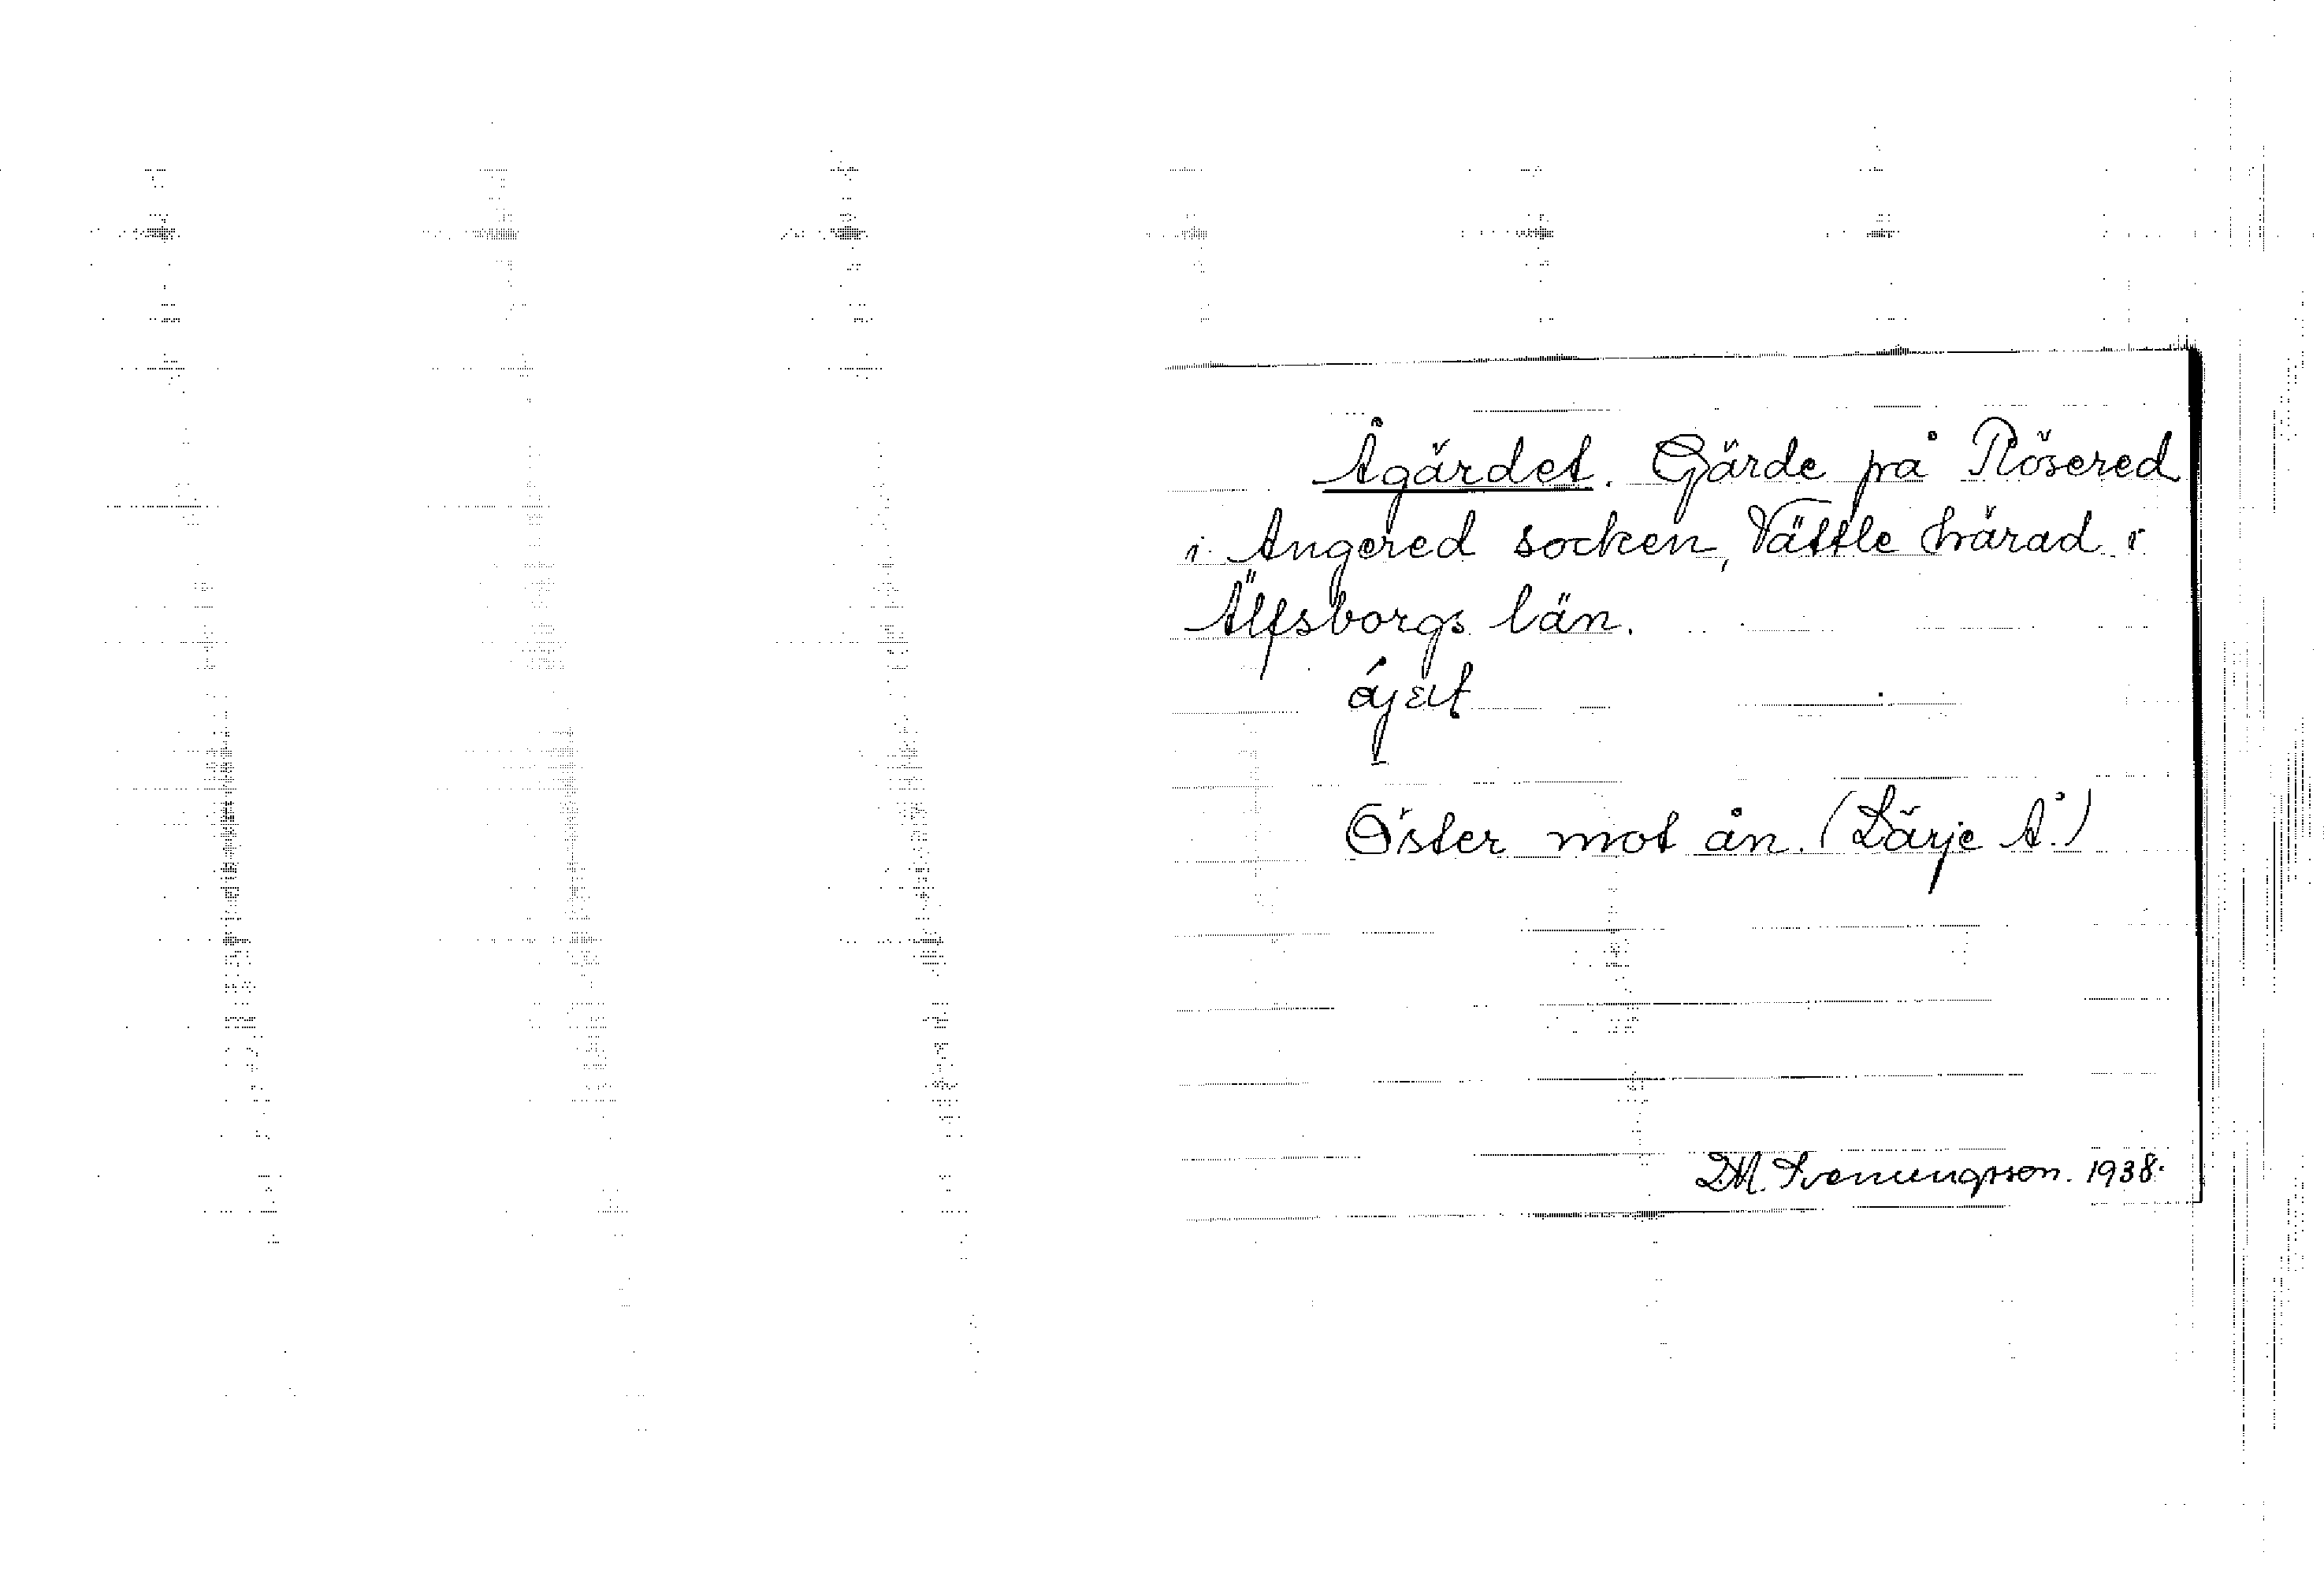 Ågärdet. Gärde på Rösered
i Angered socken, Vättle härad i
Älfsborgs län.
Öster mot ån. (Lärje Å.)
D.M. Svenungsson. 1938.